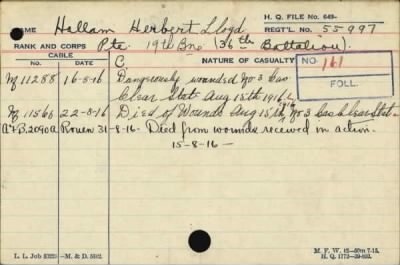 H. Q. FILE No. 649-
NAME Hallam Herbert Lloyd REGT'L. NO. 55997
RANK AND CORPS Pte. 19th Bn. (36th Battalion).
CABLE
NO. DATE NATURE OF CASUALTY
C.
NO. 161
FOLL.
M 11288 16-8-16 Dangerously wounded No 3 Cas
Clear Stat. Aug 15th 1916
M 11566 22-8-16 Died of Wounds Aug 15th No 3 Cas Clear Stat.
A.F.B. 2090A Rouen 31-8-16- Died from wounds received in action.
15-8-16-
L. L. Job —M. & D. 5162. M. F. W. 42—50m 7-15.
H. Q. 1772-39-893.